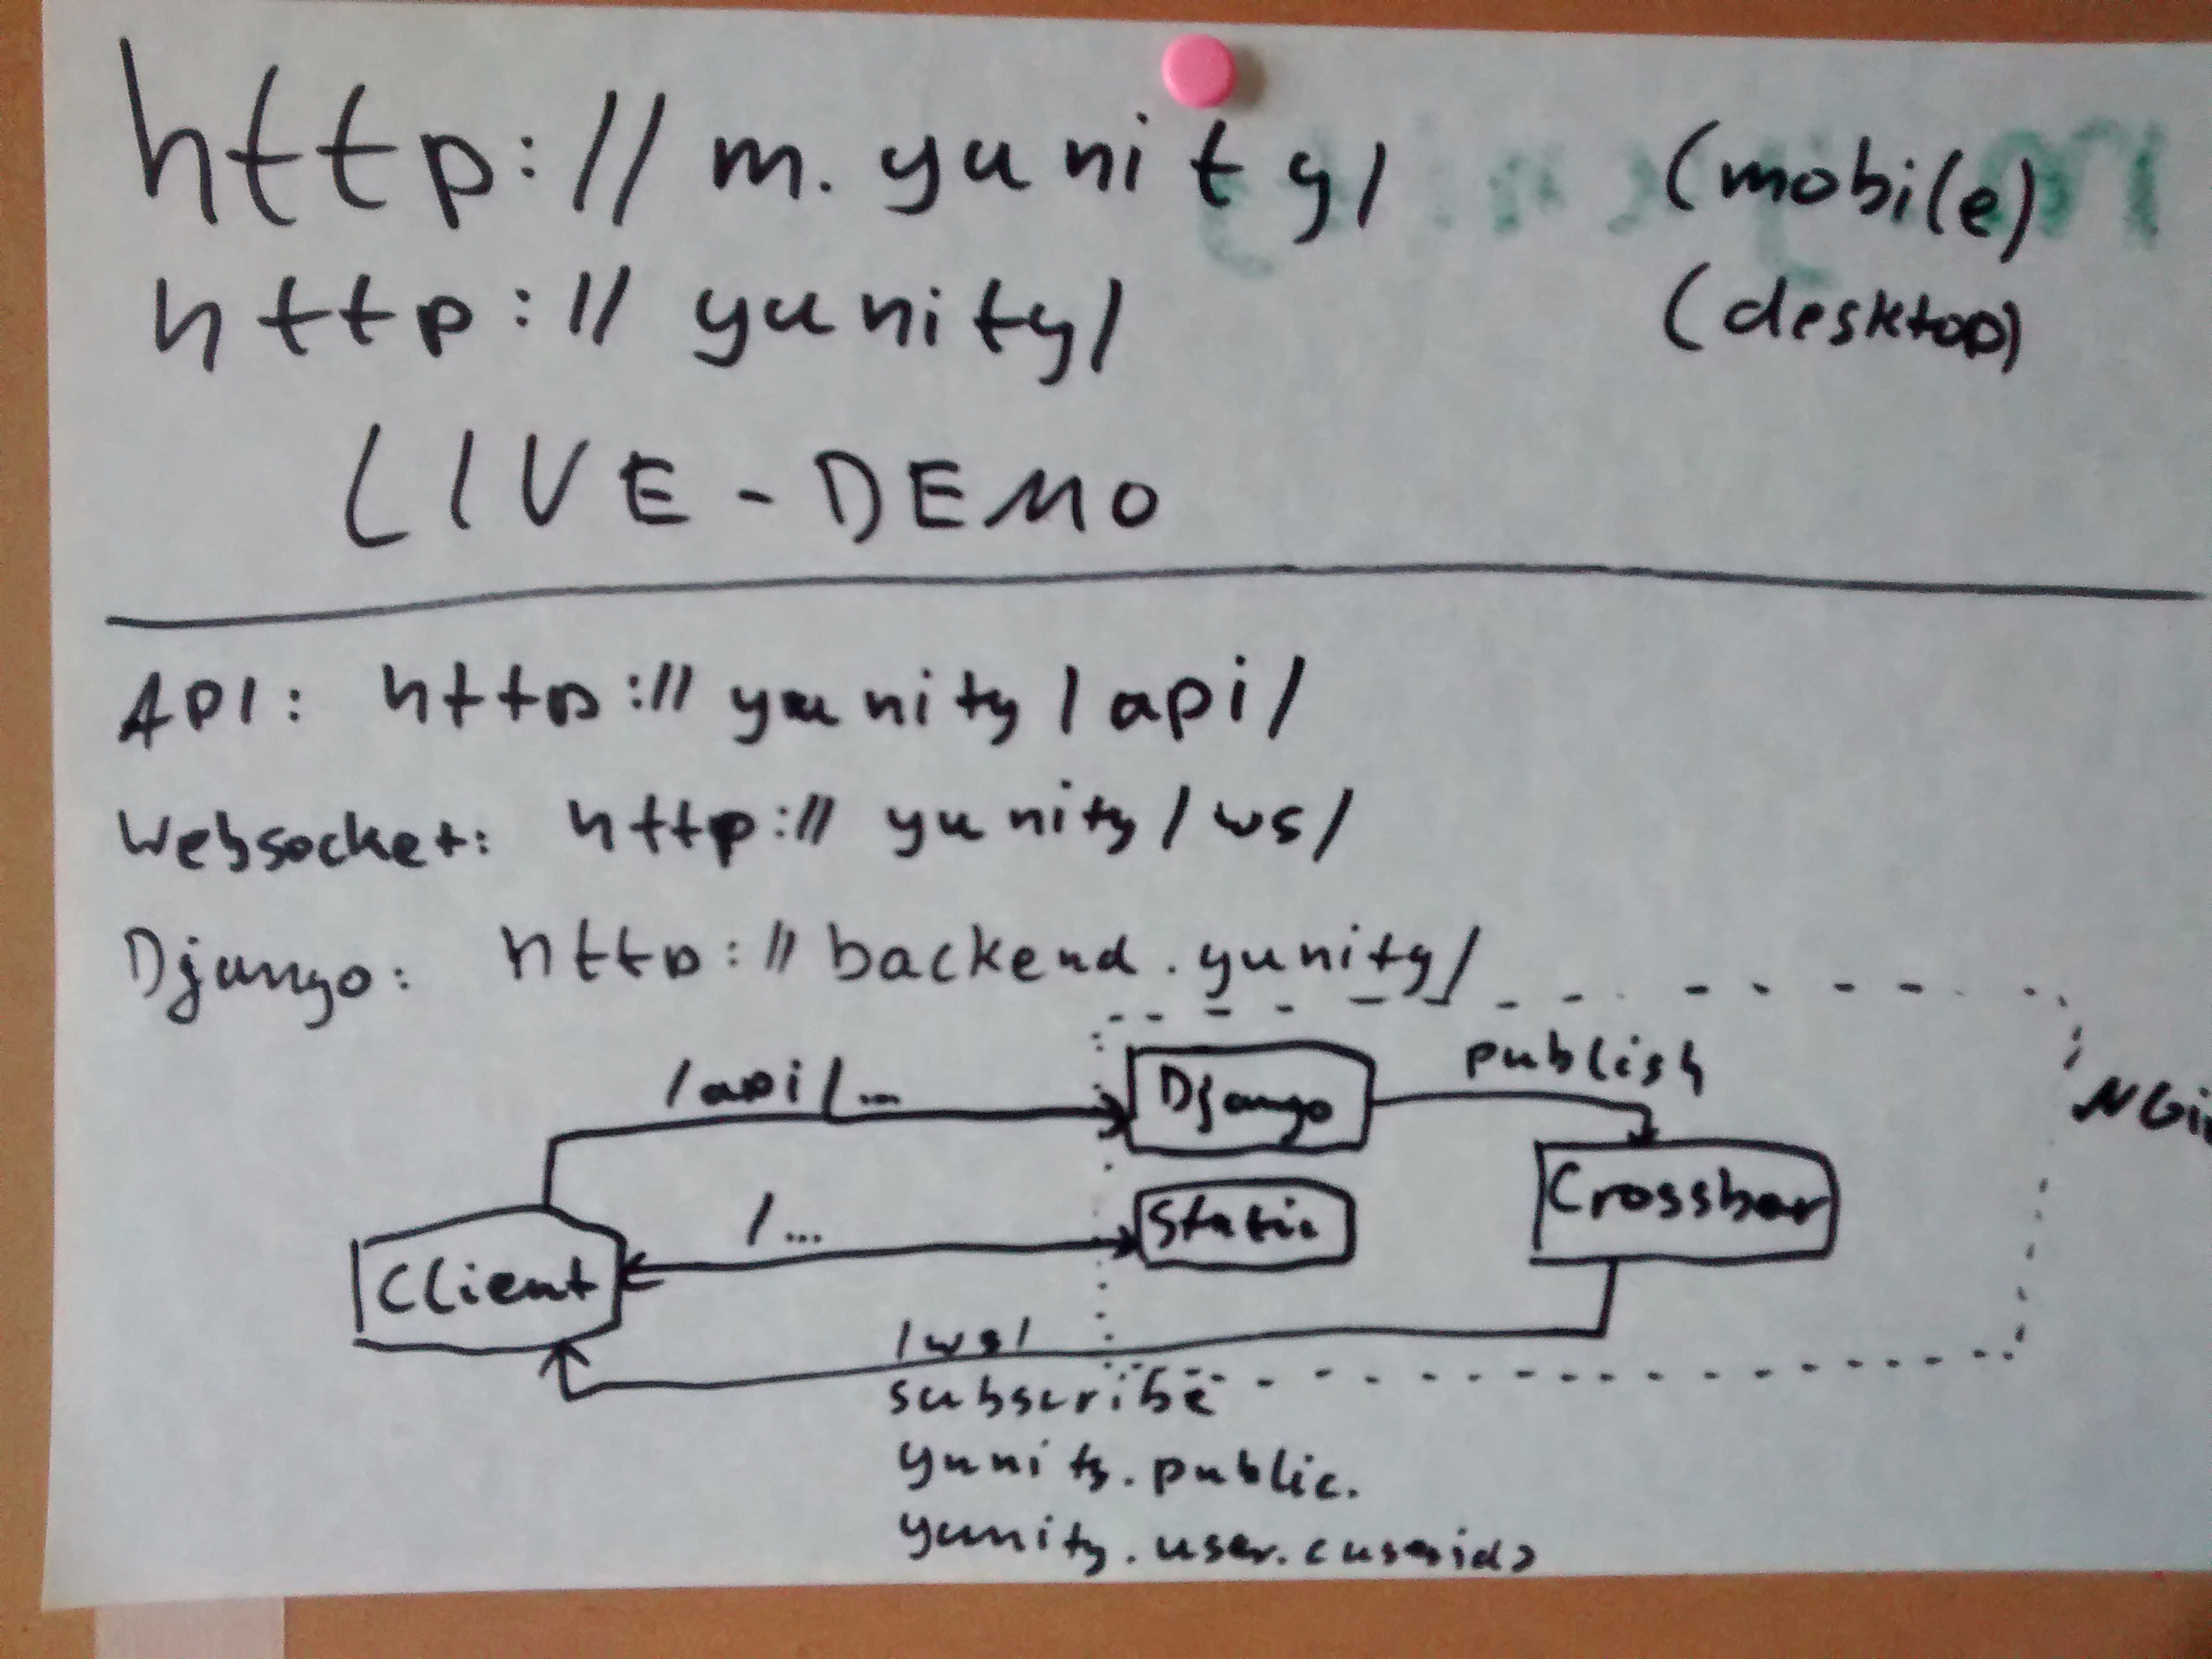 http://m.yunity/ (mobile)
http://yunity/ (desktop)
LIVE-DEMO
API: http://yunity/api/
Websocket: http://yunity/ws/
Django: http://backend.yunity/
publish
/api/...
Django
NGi
/...
Static
Crossbar
Client
/ws/
subscribe
yunity.public.
yunity.user.<userid>